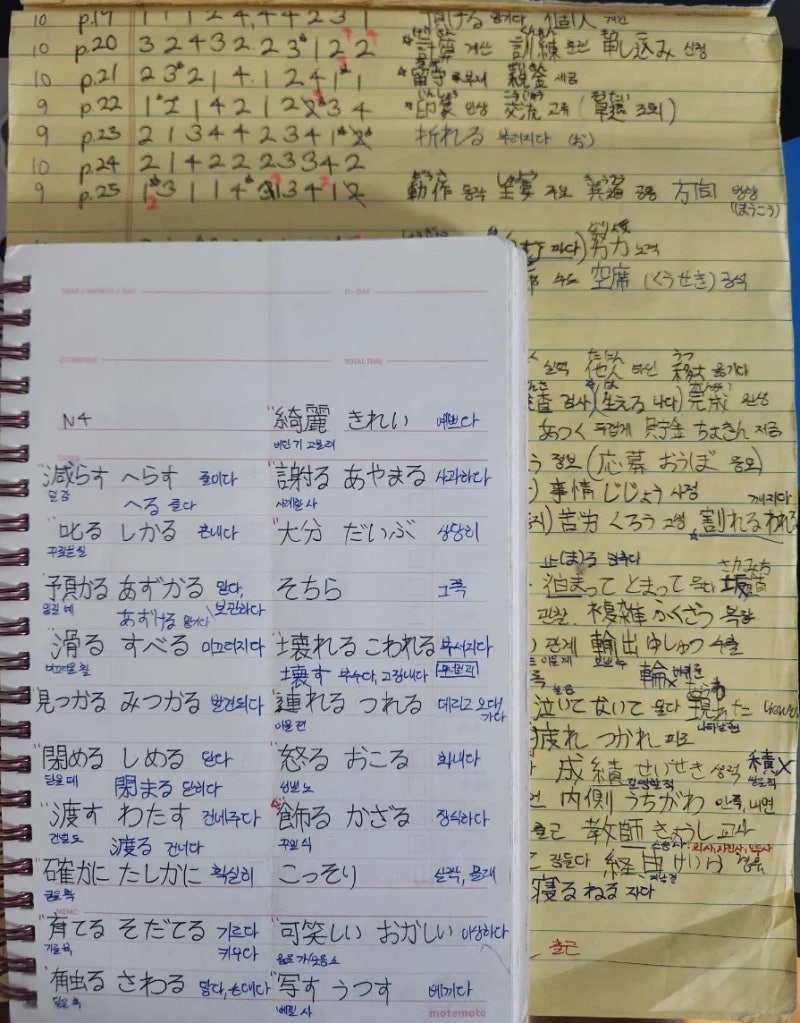 10 p.19 1 1 1 2 4 4 4 2 3 1
預ける 맡기다 個人 개인
10 p.20 3 2 4 3 2 2 3 1 2 2
計算 계산 訓練 훈련 申し込み 신청
10 p.21 2 3 2 1 4 1 2 4 1 1
留守 부재 税金 세금
9 p.22 1 2 1 4 2 1 2 2 3 4
印象 인상 交流 교류
9 p.23 2 1 3 4 4 2 3 4 1 2
折れる 부러지다 (お)
10 p.24 2 1 4 2 2 2 3 3 4 2
9 p.25 1 3 1 1 4 3 1 3 4 1 2
動作 동작 重要 주요 共通 공통 方向 방향
(ほうこう)
努力 노력
空席 (くうせき) 공석
실력 他人 타인 移す 옮기다
검사 (生える 나다) 完成 완성
あつく 두껍게 貯金 ちょきん 저금
정보 (応募 おうぼ 응모)
事情 じじょう 사정 깨지다
苦労 くろう 고생 割れる われる
止(ま)る 멈추다
泊まって とまって 묵다 坂道
관찰 複雑 ふくざつ 복잡
관계 輸出 ゆしゅつ 수출
泣いて ないて 울다 現れた
疲れ つかれ 피로
成績 せいせき 성적 積x
内側 うちがわ 안쪽, 내면
출근 教師 きょうし 교사
잠들다 経由 けいゆ 경유
寝る ねる 자다
출근
YEAR / MONTH / DAY D - DAY
COMMENT TOTAL TIME
N4
綺麗 きれい 예쁘다
TASKS
減らす へらす 줄이다
덜 감
へる 줄다
謝る あやまる 사과하다
사례할 사
叱る しかる 혼내다
꾸짖을 질
大分 だいぶ 상당히
預かる あずかる 맡다, 보관하다
맡길 예
あずける 맡기다
そちら 그쪽
滑る すべる 미끄러지다
미끄러울 활
壊れる こわれる 부서지다
壊す 부수다, 고장내다
見つかる みつかる 발견되다
連れる つれる 데리고 오다, 가다
이을 련
閉める しめる 닫다
닫을 폐
閉まる 닫히다
怒る おこる 화내다
성낼 노
渡す わたす 건네주다
건널 도
渡る 건너다
飾る かざる 장식하다
꾸밀 식
確かに たしかに 확실히
굳을 확
こっそり 살짝, 몰래
MEMO
育てる そだてる 기르다 키우다
기를 육
可笑しい おかしい 이상하다
옳을 가/웃음 소
触る さわる 닿다, 손대다
닿을 촉
写す うつす 베끼다
베낄 사
motemote